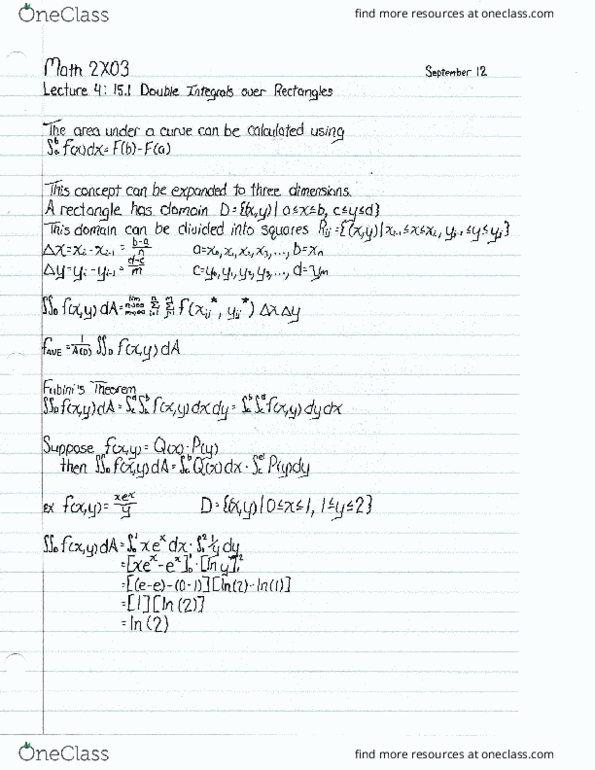 OneClass
find more resources at oneclass.com
Math 2X03
September 12
Lecture 4: 15.1 Double Integrals over Rectangles
The area under a curve can be calculated using
∫ₐᵇ f(x)dx = F(b)-F(a)
This concept can be expanded to three dimensions.
A rectangle has domain D={(x,y)| a≤x≤b, c≤y≤d}
This domain can be divided into squares Rᵢⱼ={(x,y)|xᵢ₋₁≤x≤xᵢ, yⱼ₋₁≤y≤yⱼ}
Δx=xᵢ-xᵢ₋₁=(b-a)/n a=x₀, x₁, x₂, x₃, ..., b=xₙ
Δy=yⱼ-yⱼ₋₁=(d-c)/m c=y₀, y₁, y₂, y₃, ..., d=yₘ
∬_D f(x,y) dA = lim n→∞ m→∞ Σ Σ f(xᵢⱼ*, yᵢⱼ*) Δx Δy
f_AVE = 1/A(D) ∬_D f(x,y)dA
Fubini's Theorem
∬_D f(x,y)dA = ∫_c^d ∫_a^b f(x,y)dx dy = ∫_a^b ∫_c^d f(x,y) dy dx
Suppose f(x,y) = Q(x)·P(y)
then ∬_D f(x,y)dA = ∫_a^b Q(x)dx · ∫_c^d P(y)dy
ex f(x,y) = xeˣ/y D={(x,y)|0≤x≤1, 1≤y≤2}
∬_D f(x,y)dA = ∫₀¹ xeˣ dx · ∫₁² 1/y dy
= [xeˣ-eˣ]₀¹ · [ln y]₁²
= [(e-e)-(0-1)][ln(2)-ln(1)]
= [1][ln(2)]
= ln(2)
OneClass
find more resources at oneclass.com